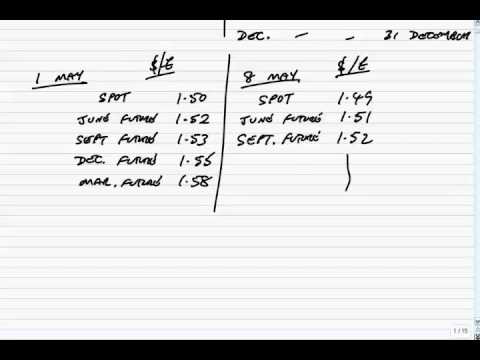 DEC. — — 31 DECEMBER
1 MAY $/£
SPOT 1.50
JUNE FUTURE 1.52
SEPT FUTURE 1.53
DEC. FUTURE 1.55
MAR. FUTURE 1.58
8 MAY $/£
SPOT 1.49
JUNE FUTURE 1.51
SEPT. FUTURE 1.52
1 / 15